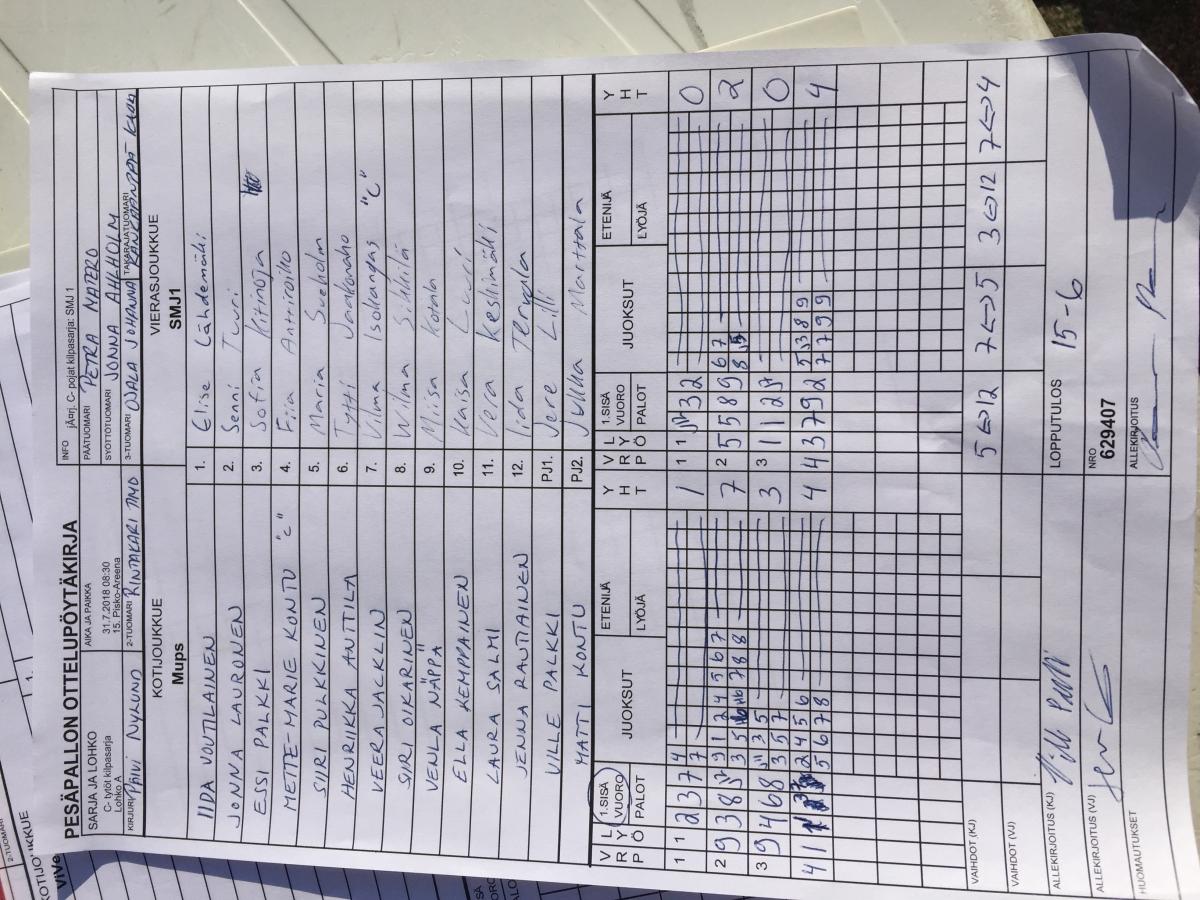 PESÄPALLON OTTELUPÖYTÄKIRJA
SARJA JA LOHKO
C- tytöt kilpasarja
Lohko A
AIKA JA PAIKKA
31.7.2018 08:30
15. Pisko-Areena
INFO jÄ¤rj. C- pojat kilpasarja: SMJ 1
PÄÄTUOMARI PETRA MATERO
SYÖTTÖTUOMARI JONNA AHLHOLM
KIRJURI PÄIVI NYKUND
2-TUOMARI RINTAKARI TIMO
3-TUOMARI OJALA JOHANNA
TAKARAJATUOMARI
KOTIJOUKKUE
Mups
VIERASJOUKKUE
SMJ1
IIDA VOUTILAINEN 1. Elise Lähdemäki
JONNA LAURONEN 2. Senni Turi
ESSI PALKKI 3. Sofia Kitinoja
METTE-MARIE KONTU "C" 4. Fiia Anttiroiko
SIIRI PULKKINEN 5. Maria
HENRIIKKA ANTTILA 6. Tytti Jaakonaho
VEERA JACKLIN 7. Vilma Isokangas "C"
SIIRI OIKARINEN 8. Wilma
VENLA NÄPPÄ 9. Miisa
ELLA KEMPPAINEN 10. Kaisa Luuri
LAURA SALMI 11. Vera Keskimäki
JENNA RAUTIAINEN 12. Iida Tervala
VILLE PALKKI PJ1. Jere Lilli
MATTI KONTU PJ2. Jukka Marttala
V R P L Y Ö 1.SISÄ VUORO PALOT JUOKSUT ETENIJÄ LYÖJÄ Y H T
V R P L Y Ö 1.SISÄ VUORO PALOT JUOKSUT ETENIJÄ LYÖJÄ Y H T
1 1 2 3 7 4 7 1
1 1 3 2 0
2 9 3 8 9 1 2 4 5 6 7 7
2 5 5 8 9 6 7 2
3 9 4 6 8 3 5 3
3 1 1 2 0
4 1 2 4 5 6 4
5 6 7 8
4 4 3 7 9 2 5 3 8 9 4
7 7 9 9
VAIHDOT (KJ) 5<=>12 7<=>5 3<=>12 7<=>4
VAIHDOT (VJ)
ALLEKIRJOITUS (KJ)
LOPPUTULOS 15-6
ALLEKIRJOITUS (VJ)
NRO
629407
HUOMAUTUKSET
ALLEKIRJOITUS
2-TUOMARI
KOTIJOUKKUE